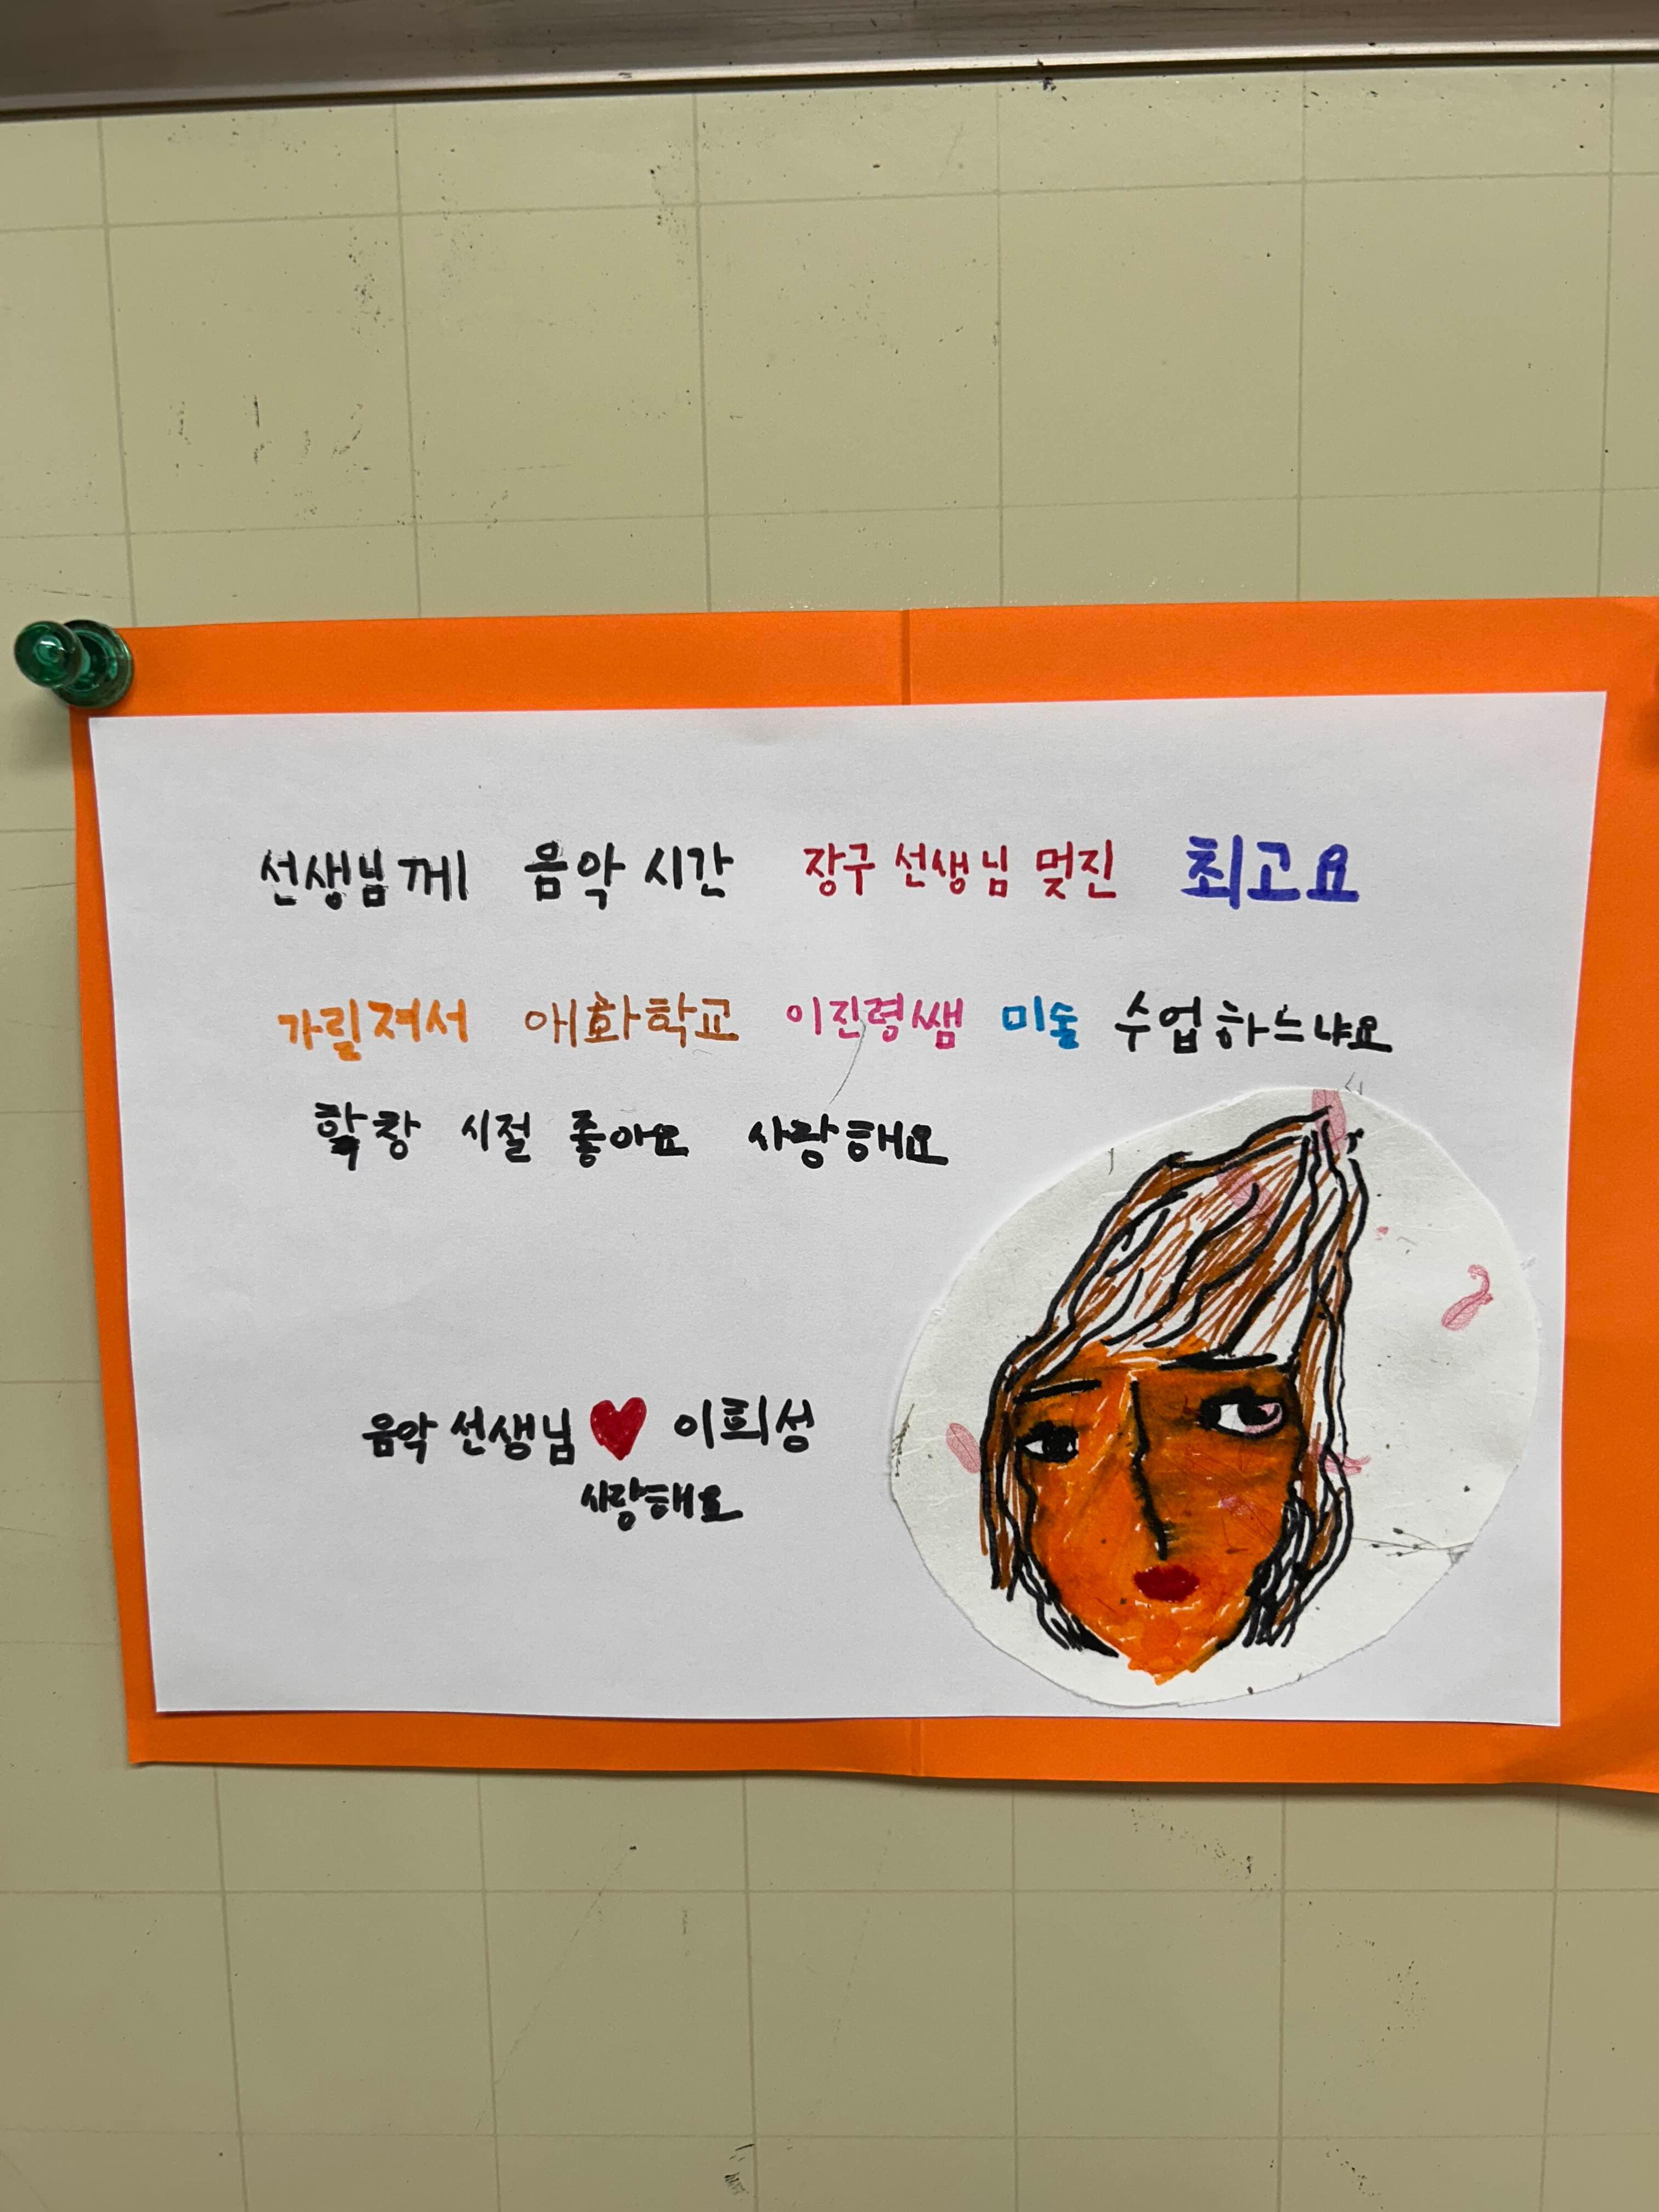 선생님께 음악 시간 장구 선생님 멎진 최고요
가릴져서 애화학교 이진령쌤 미술 수업하느냐요
학창 시절 좋아요 사랑해요
음악 선생님 이희성
사랑해요